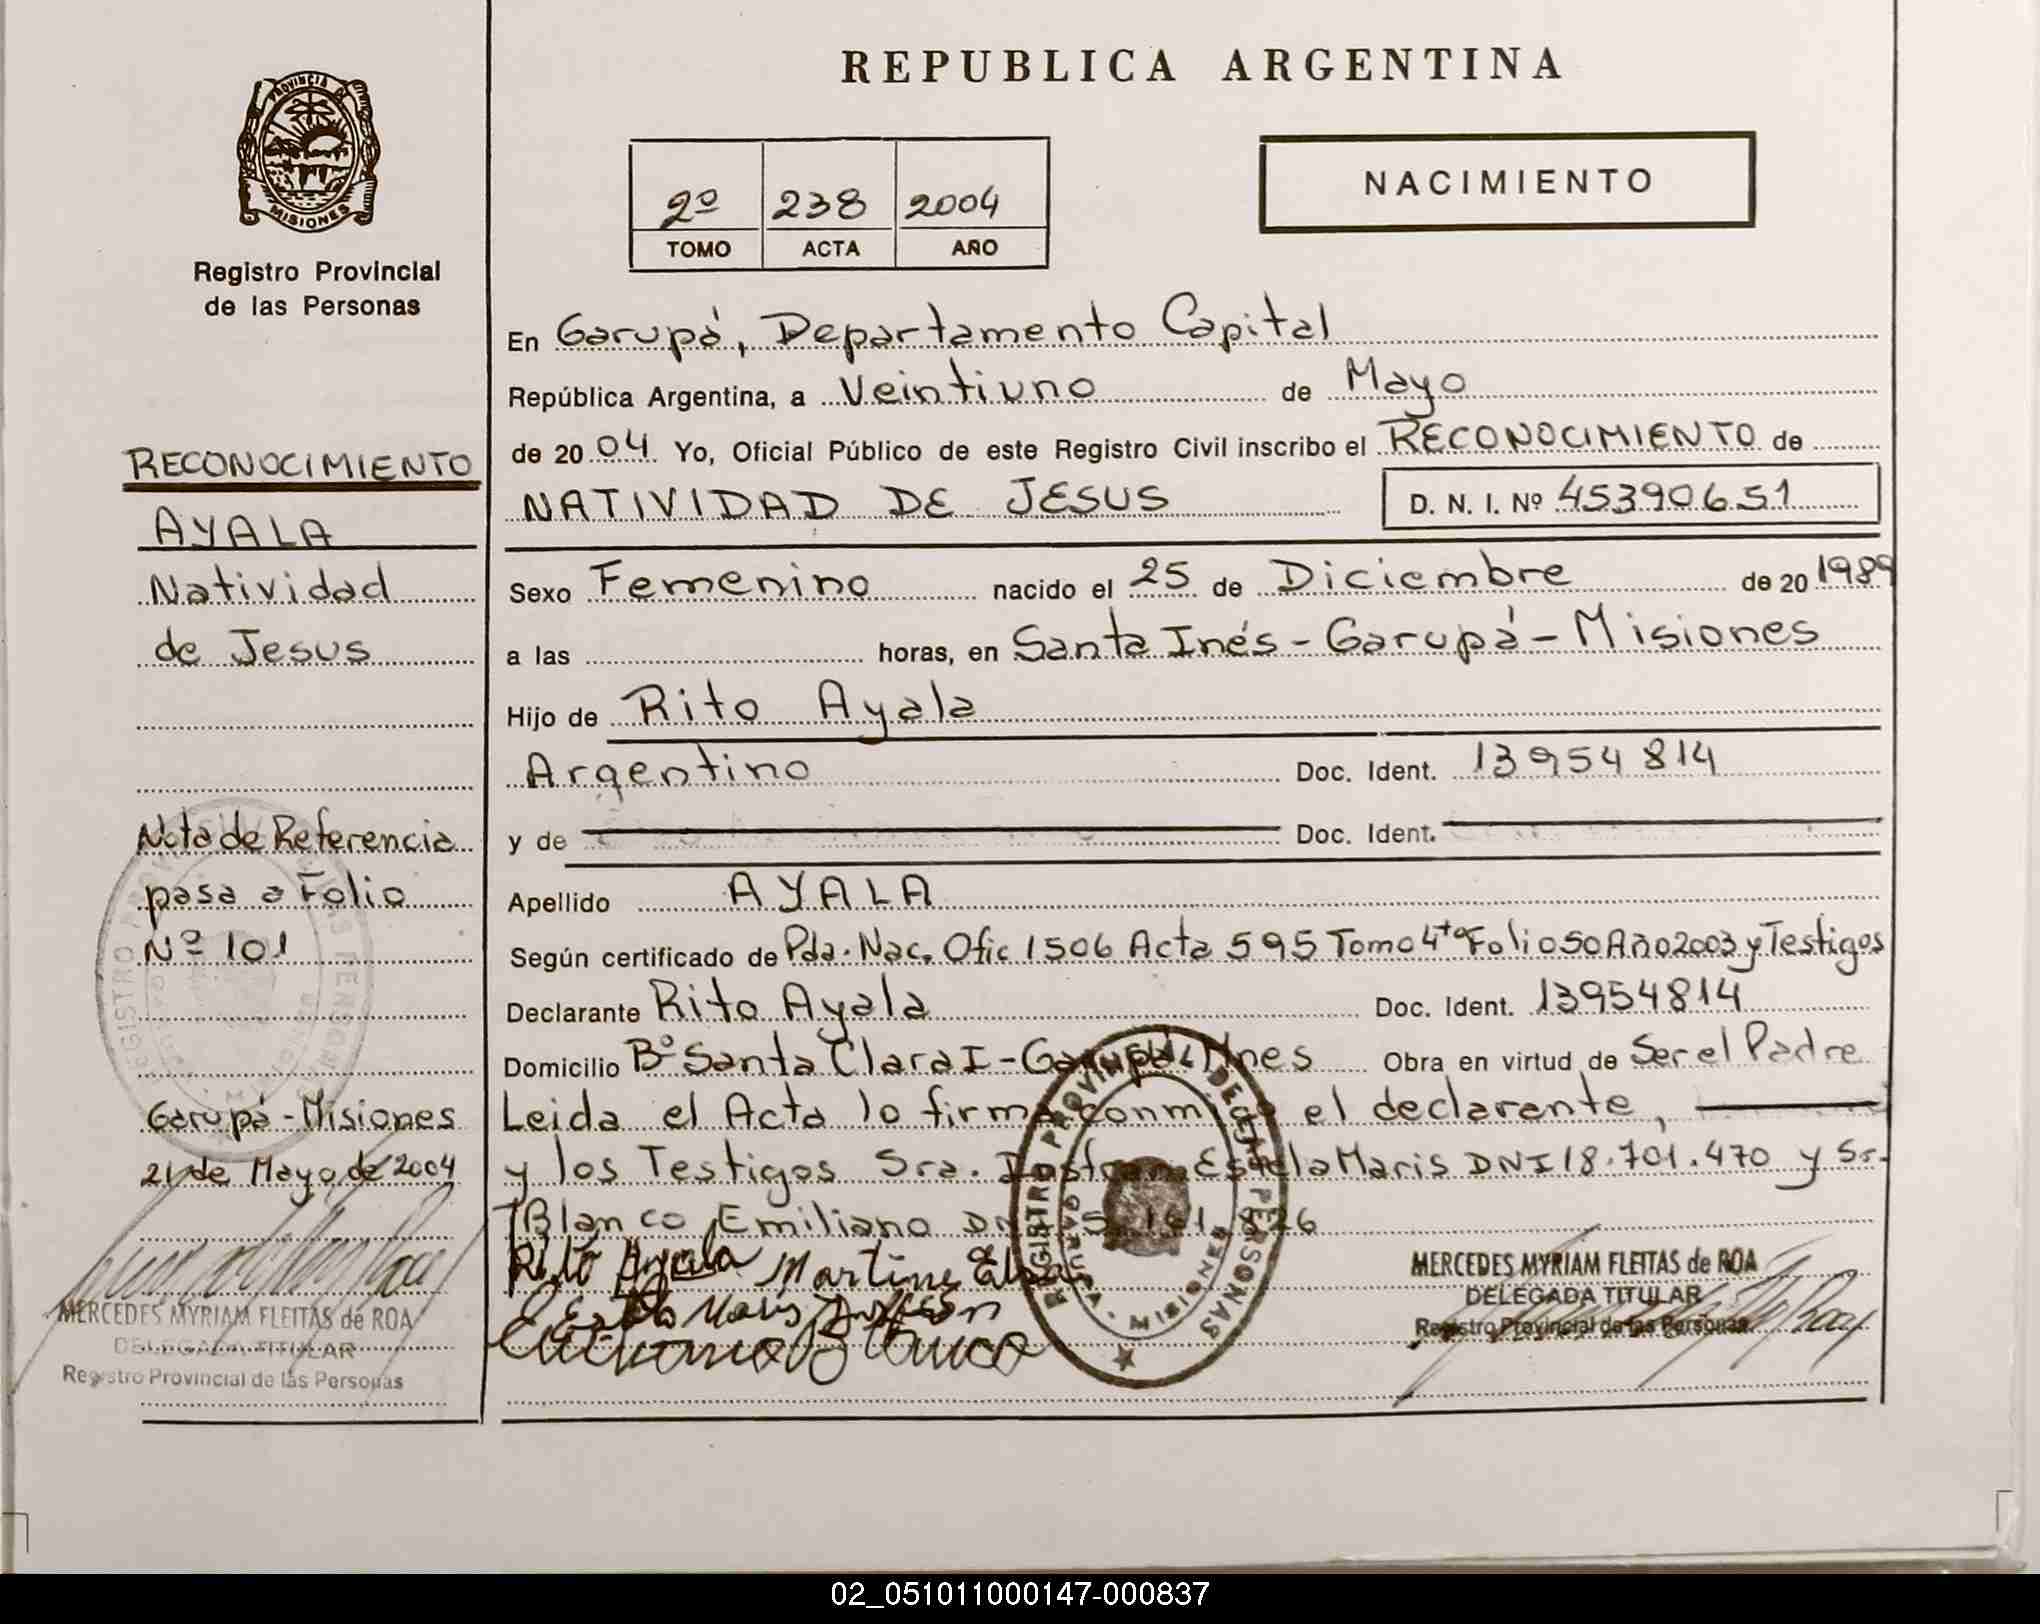 REPUBLICA ARGENTINA
PROVINCIA DE
MISIONES
Registro Provincial
de las Personas
2º 238 2004
TOMO ACTA AÑO
NACIMIENTO
RECONOCIMIENTO
AYALA
Natividad
de Jesus
Nota de Referencia
pasa a Folio
Nº 101
Garupá-Misiones
21 de Mayo de 2004
MERCEDES MYRIAM FLEITAS de ROA
DELEGADA TITULAR
Registro Provincial de las Personas
En Garupá, Departamento Capital
República Argentina, a Veintiuno de Mayo
de 2004 Yo, Oficial Público de este Registro Civil inscribo el RECONOCIMIENTO de
NATIVIDAD DE JESUS D. N. I. Nº 45390651
Sexo Femenino nacido el 25 de Diciembre de 20 1989
a las horas, en Santa Inés - Garupá - Misiones
Hijo de Rito Ayala
Argentino Doc. Ident. 13954814
y de Doc. Ident.
Apellido AYALA
Según certificado de Pda. Nac. Ofic 1506 Acta 595 Tomo 4to Folio 50 Año 2003 y Testigos
Declarante Rito Ayala Doc. Ident. 13954814
Domicilio Bº Santa Clara I - Garupá Mnes Obra en virtud de Ser el Padre
Leida el Acta lo firma conmigo el declarante,
y los Testigos Sra. Estela Maris DNI 18.701.470 y Sr.
Blanco Emiliano
Rito Ayala
REGISTRO PROVINCIAL DE LAS PERSONAS
GARUPA - MISIONES
MERCEDES MYRIAM FLEITAS de ROA
DELEGADA TITULAR
Registro Provincial de las Personas
02_051011000147-000837